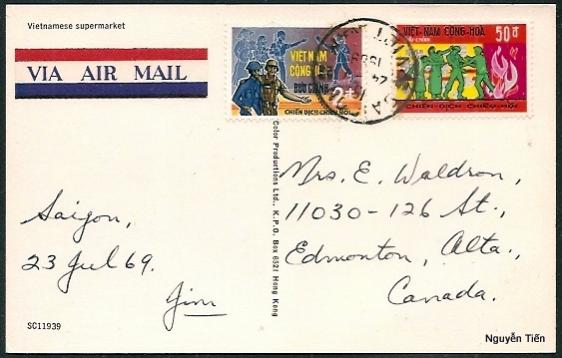 Vietnamese supermarket
VIA AIR MAIL
VIỆT NAM
CỘNG HÒA
BƯU CHÍNH
2đ
CHIẾN DỊCH CHIÊU HỒI
BƯU CHÍNH
VIỆT-NAM CỘNG-HÒA
50đ
CHIẾN-DỊCH CHIÊU-HỒI
Color Productions Ltd., K.P.O. Box 6521 Hong Kong
Saigon,
23 Jul 69.
Jim
Mrs. E. Waldron,
11030-126 St.,
Edmonton, Alta.,
Canada.
SC11939
Nguyễn Tiến